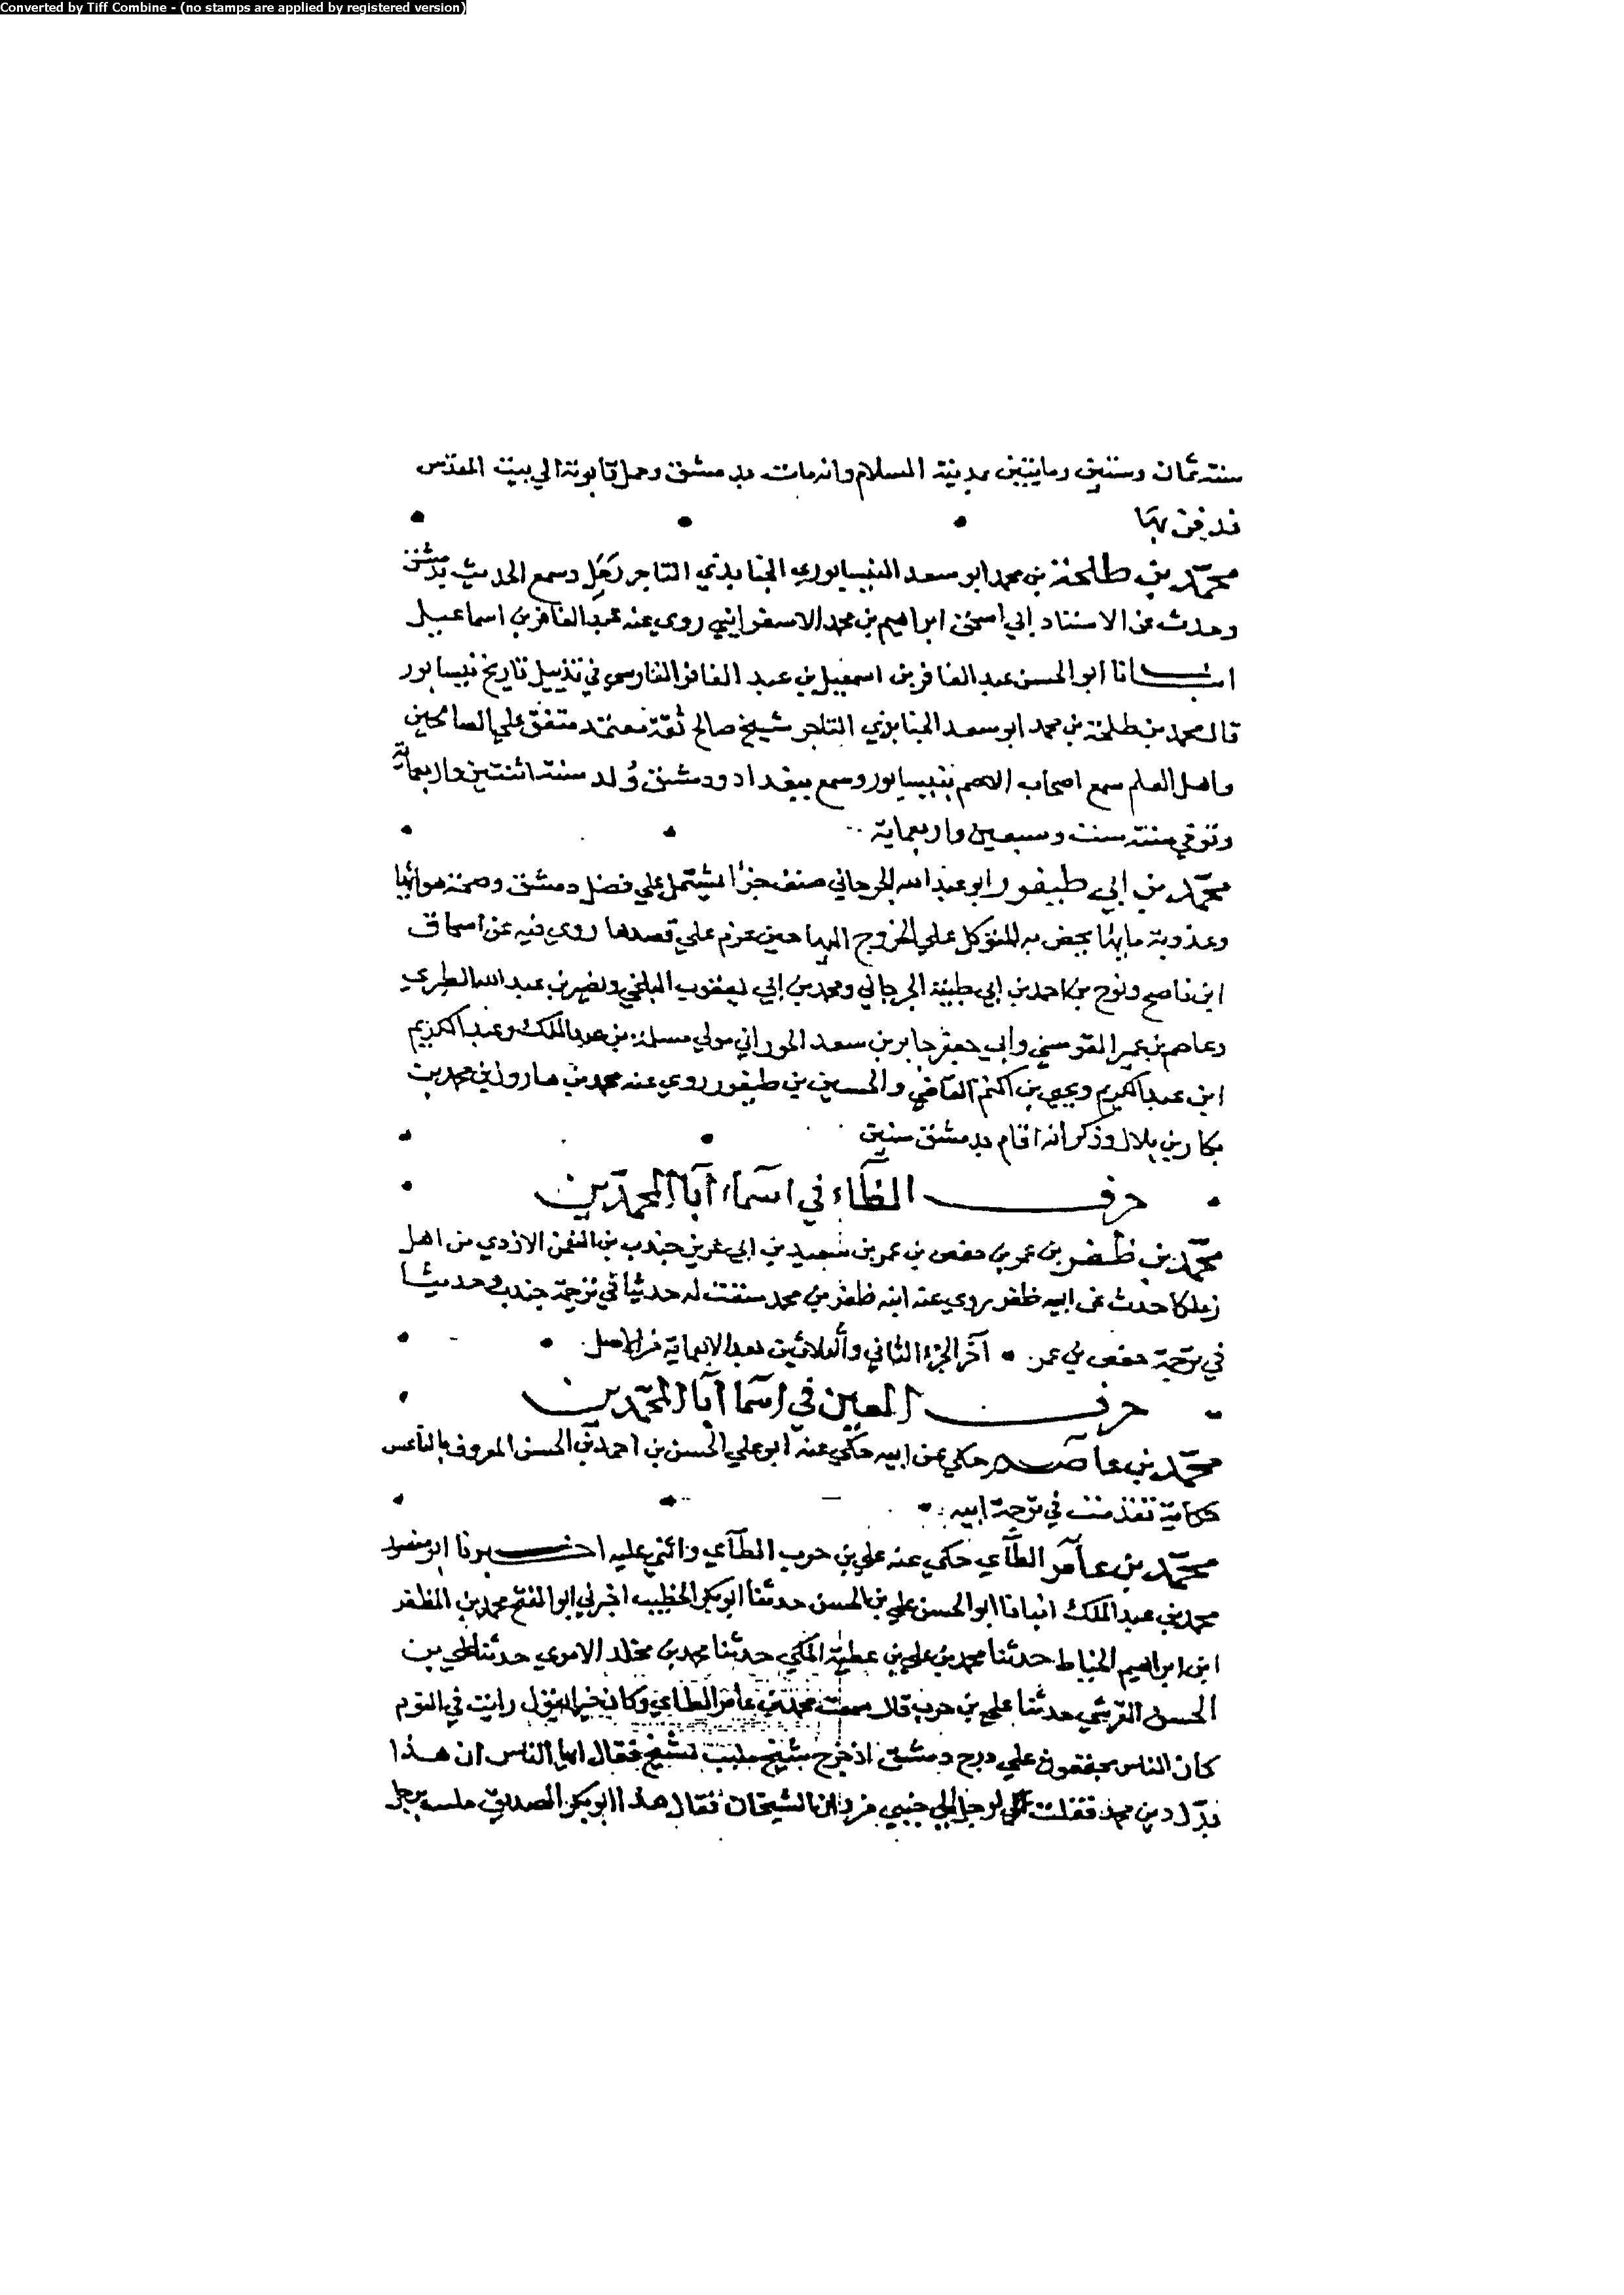 Converted by Tiff Combine - (no stamps are applied by registered version)
سنة ثمان وستين ومايتين بمدينة السلام وانه مات بدمشق وحمل تابوته الي بيت المقدس
فدفن بها
محمد بن طلحة بن محمد ابو سعد النيسابوري الجنابذي التاجر رحل وسمع الحديث بدمشق
وحدث عن الاستاد ابي اسحق ابراهيم بن محمد الاسفرايني روي عنه عبد الغافر بن اسماعيل
انبانا ابو الحسن عبد الغافر بن اسمعيل بن عبد الغافر الفارسي في تذييل تاريخ نيسابور
قال محمد بن طلحة بن محمد ابو سعد الجنابذي التاجر شيخ صالح ثقة معتمد متفق علي الصالحين
واهل العلم سمع اصحاب الاصم بنيسابور وسمع ببغداد ودمشق ولد سنة اثنتين واربعماية
وتوفي سنة ست وسبعين واربعماية
محمد بن ابي طيفور ابو عبد الله الجرجاني صنف جزأ يشتمل علي فضل دمشق وصحة هوائها
وعذوبة مائها يحض به المتوكل علي الخروج اليها حين عزم علي قصدها روي فيه عن اسحاق
ابن ناصح ونوح بن احمد بن ابي طيبة الجرجاني ومحمد بن ابي يعقوب البلخي ونصير بن عبد الله الطبري
وعاصم بن عمير القومسي وابي جعفر جابر بن سعد الحوراني مولي مسلمة بن عبد الملك وعبد الكريم
ابن عبد الكريم ويحيي بن اكثم القاضي والحسين بن طيفور روي عنه محمد بن هارون بن محمد بن
بكار بن بلال وذكر انه اقام بدمشق سنين
حرف الظاء في اسماء آباء المحمدين
محمد بن ظفر بن عمر بن حفص بن عمر بن سعيد بن ابي عزيز جندب بن النعمن الازدي من اهل
زملكا حدث عن ابيه ظفر روي عنه ابنه ظفر بن محمد سقت له حديثا في ترجمة جندب وحديثا
في ترجمة حفص بن عمر آخر الجزء الثاني والثلاثين بعد الاربعماية من الاصل
حرف العين في اسما آبا المحمدين
محمد بن عاصم حكي عن ابيه حكي عنه ابو علي الحسن بن احمد بن الحسن المعروف بالناعس
حكاية تقدمت في ترجمة ابيه
محمد بن عامر الطآءي حكي عنه علي بن حرب الطآءي واثني عليه اخبرنا ابو منصور
محمد بن عبد الملك انبانا ابو الحسن علي بن الحسن حدثنا ابو بكر الخطيب اخبرني ابو الفتح محمد بن المظفر
ابن ابراهيم الخياط حدثنا محمد بن علي بن عطية المكي حدثنا محمد بن مخلد الاموي حدثنا علي بن
الحسن القرشي حدثنا علي بن حرب قال سمعت محمد بن عامر الطاءي وكان خيرا يقول رايت في النوم
كان الناس مجتمعون علي درج دمشق اذ خرج شيخ ملبب بشيخ فقال ايها الناس ان هذا
بدل دين محمد فقلت لرجل الي جنبي من ذان الشيخان فقال هذا ابو بكر الصديق ملبب برجل